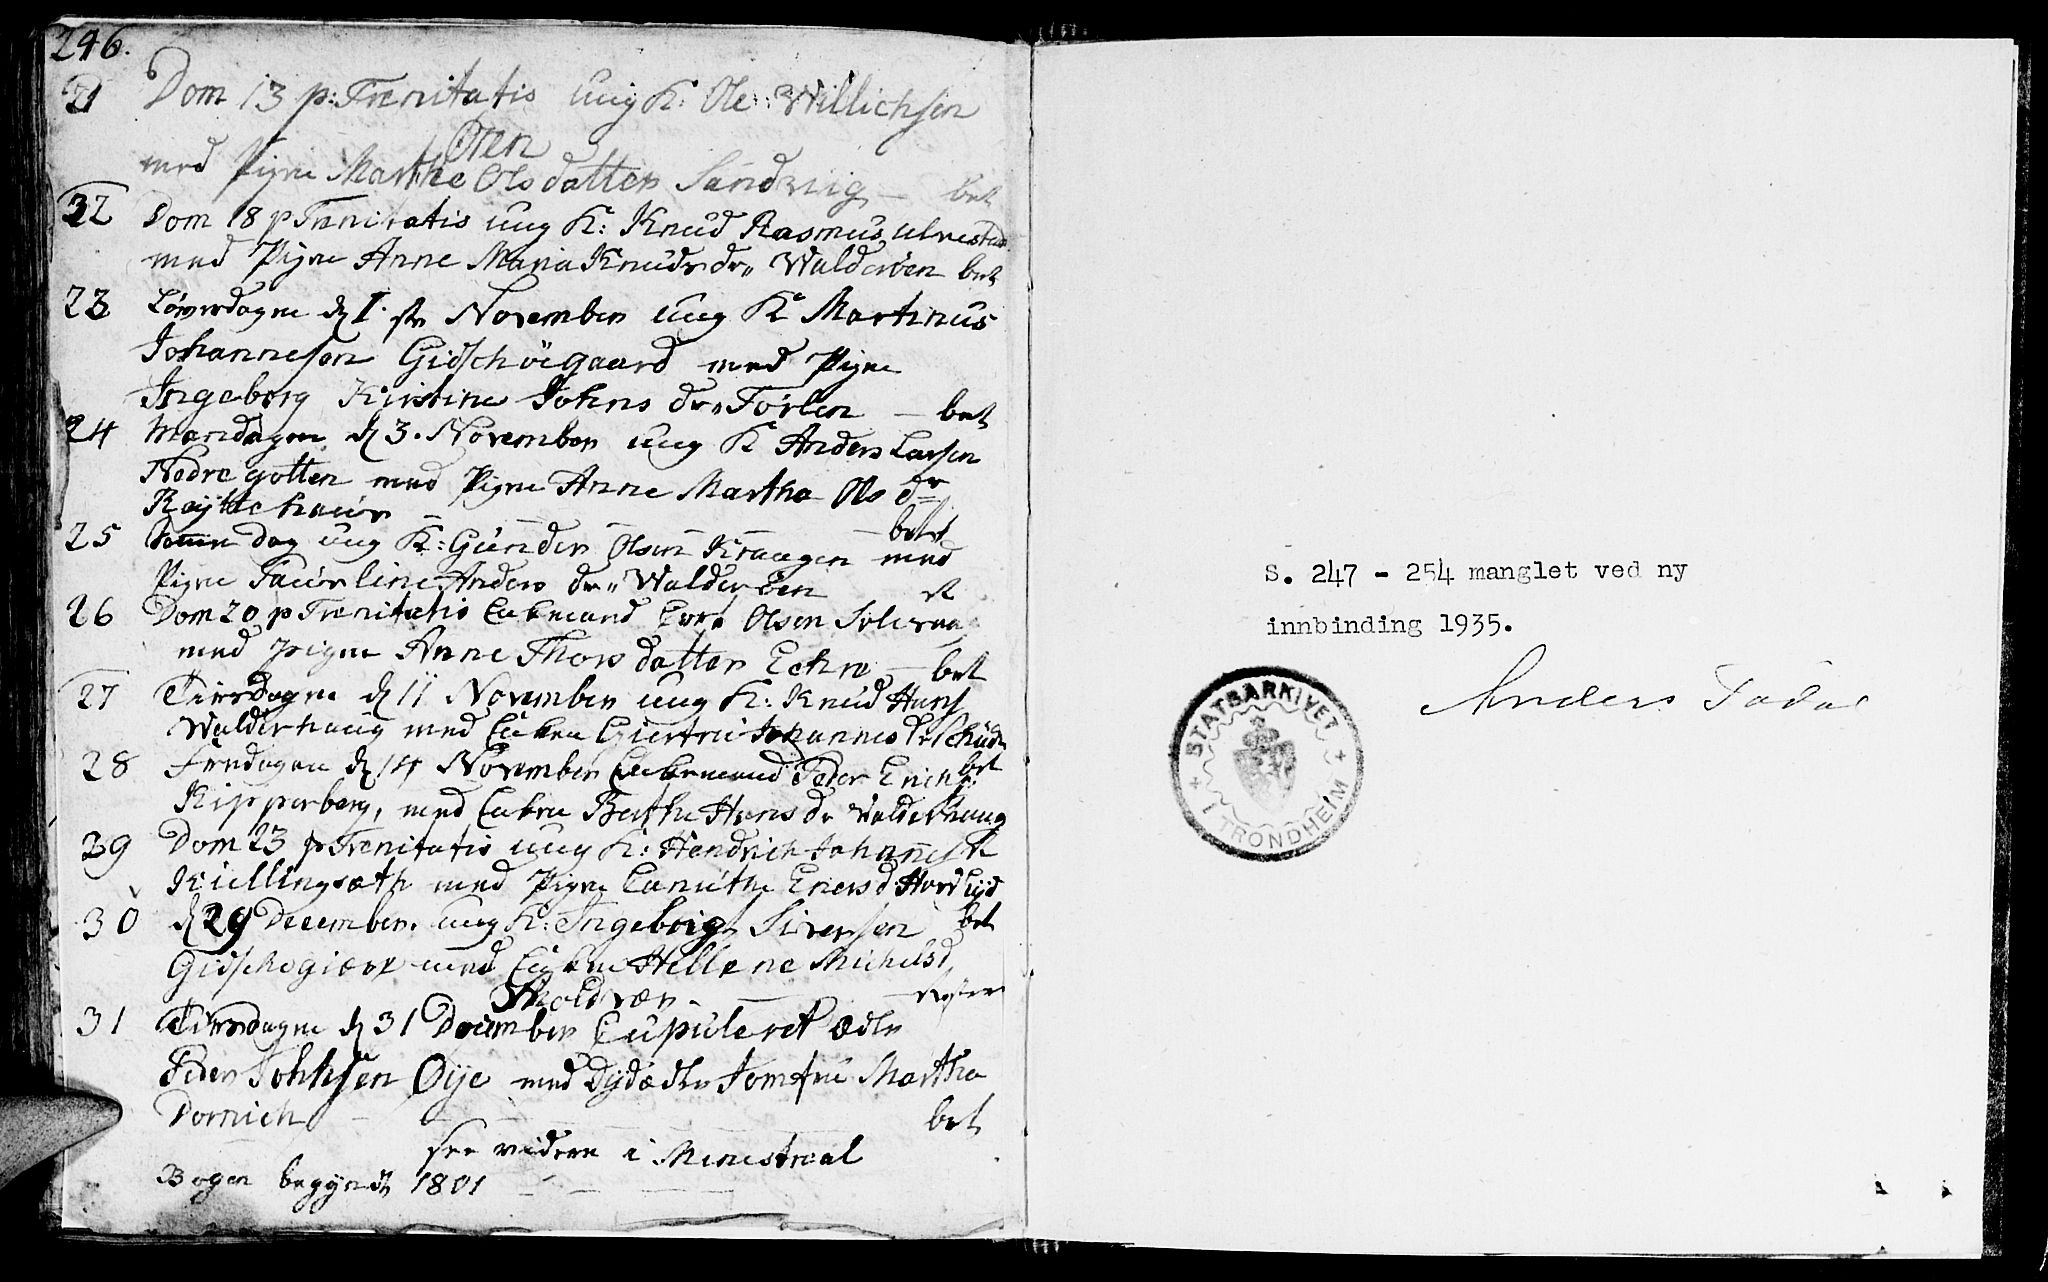 246.
21 Dom 13 p: Trenitatis ung K: Ole Willichsen
Øien
med Pigen Marthe Olsdatter Sandvig — bet
22 Dom 18 p Trenitatis ung K: Knud Rasmus Ulvestad
med Pigen Anne Maria Knuds dr„ Walderøen bet
23 Løverdagen d 1. ste November ung K Martinus
Johannesen Gidschöegaard med Pigen
Ingeborg Kirstine Johns dr„ — bet
24 Mandagen d 3. November ung K Anders Larsen
Nedre gotten med Pigen Anne Martha Ols dr
Røjtte houv — bet
25 Samme Dag ung K: Gunder Olsen med
Pigen Anders dr„ Walderöen
26 Dom 20 p Trenitatis Enkemand Olsen
med Pigen Anne Thors datter — bet
27 Tirsdagen d 11 November ung K: Knud Hans
Walderhaug med Enken Giertru Johannes
bet
28 Fredagen d 14 November Enkemand Peder Erichs
Kipperberg, med Enken Berthe Hans dr Walderhaug
29 Dom 23 p Trenitatis ung K: Hendrich Johannes
Kiellingsæth med Pigen Canuthe
30 d 29 December. ung K: Ingebrigt Siversen bet
med Enken Hellene Michelsd
Moldvær — rester
31 Tirsdagen d 31 December Cupuleret ædle
Peder Johnsen Øye med Dydædle Jomfru Martha
Dornich — bet
see videre i Menestreal
Bogen begynt 1801
S. 247 - 254 manglet ved ny
innbinding 1935.
Anders Todal
STATSARKIVET
I TRONDHEIM